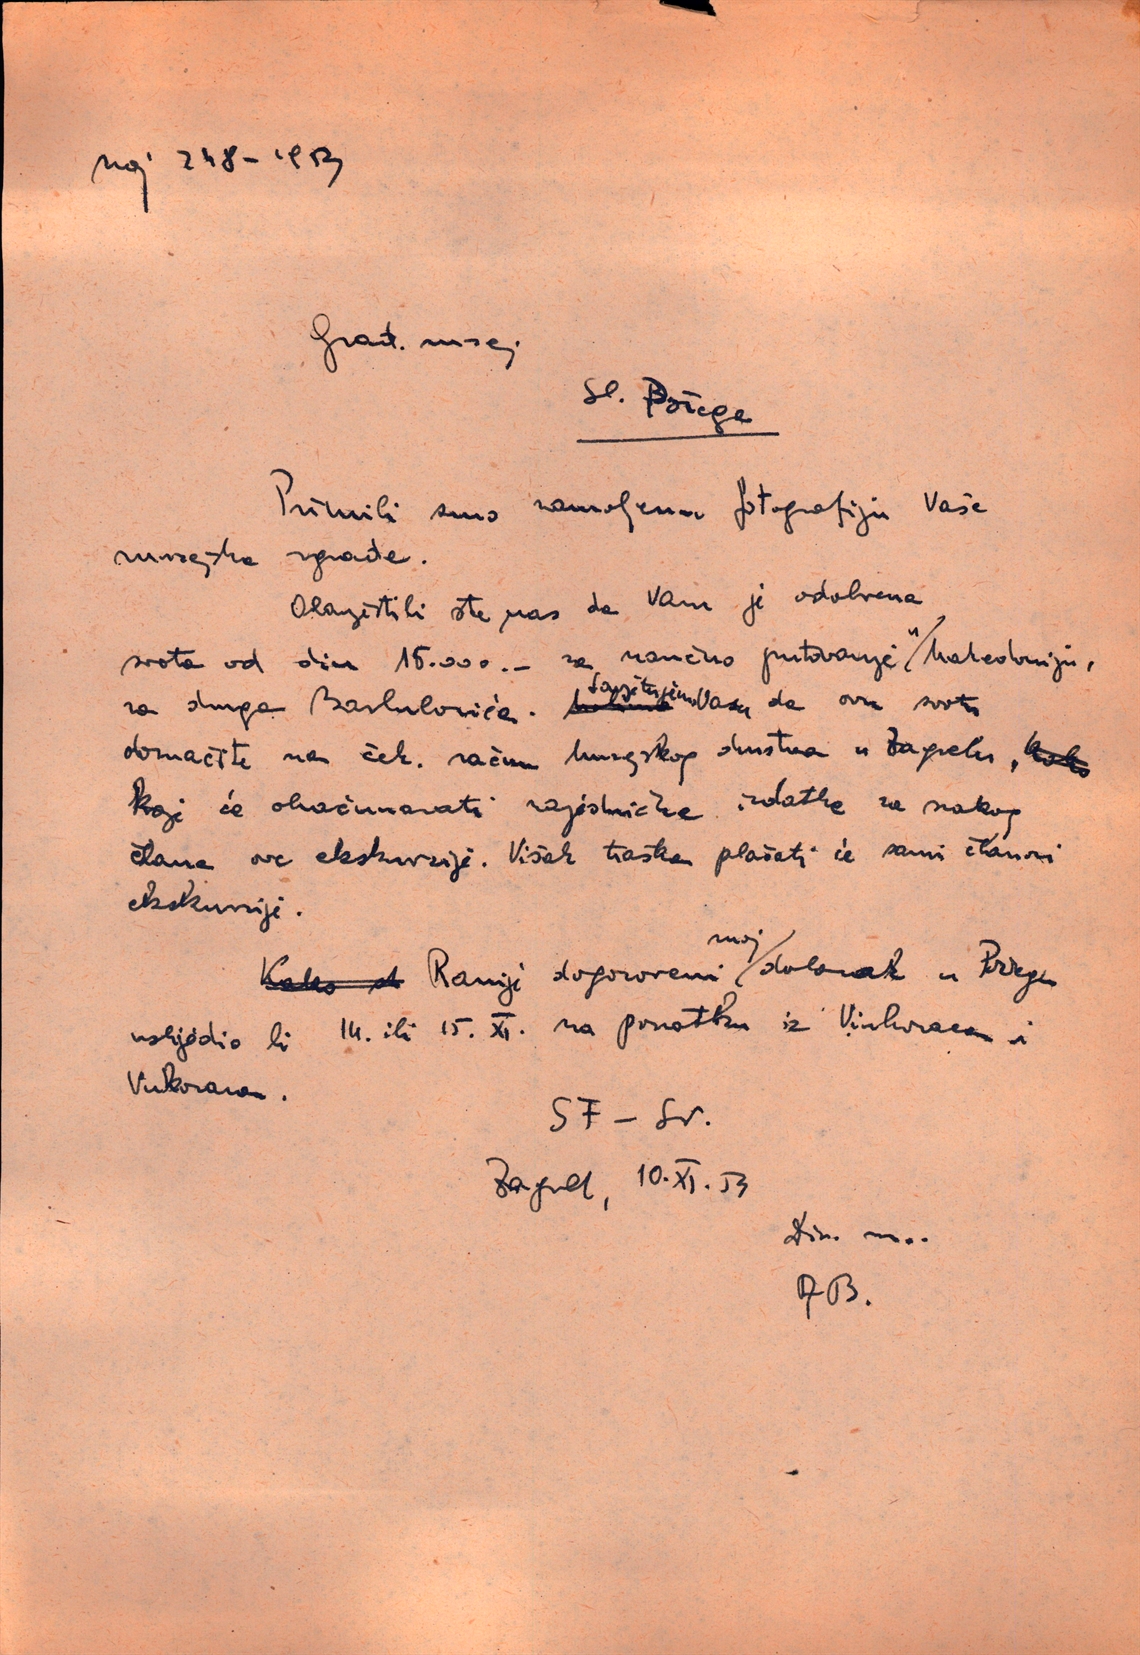 Broj 248-1953
Grad. muzej
Sl. Požega
Primili smo zamoljenu fotografiju Vaše
muzejske zgrade.
Obavjestili ste nas da Vam je odobrena
svota od din 15.000.- za naučno putovanje u Makedoniju,
za druga
Vas da ovu svotu
doznačite na ček. račun Muzejskog društva u Zagrebu, kako
koji će obračunavati zajedničke izdatke za svakog
člana ove ekskurzije. Višak troška plaćati će sami članovi
ekskurzije.
Kako Ranije dogovoreni moj dolazak u Požegu
uslijedio bi 14. ili 15. XI. na povratku iz Vinkovaca i
Vukovara.
SF - SN.
Zagreb, 10. XI. 53
Dir. m..
AB.